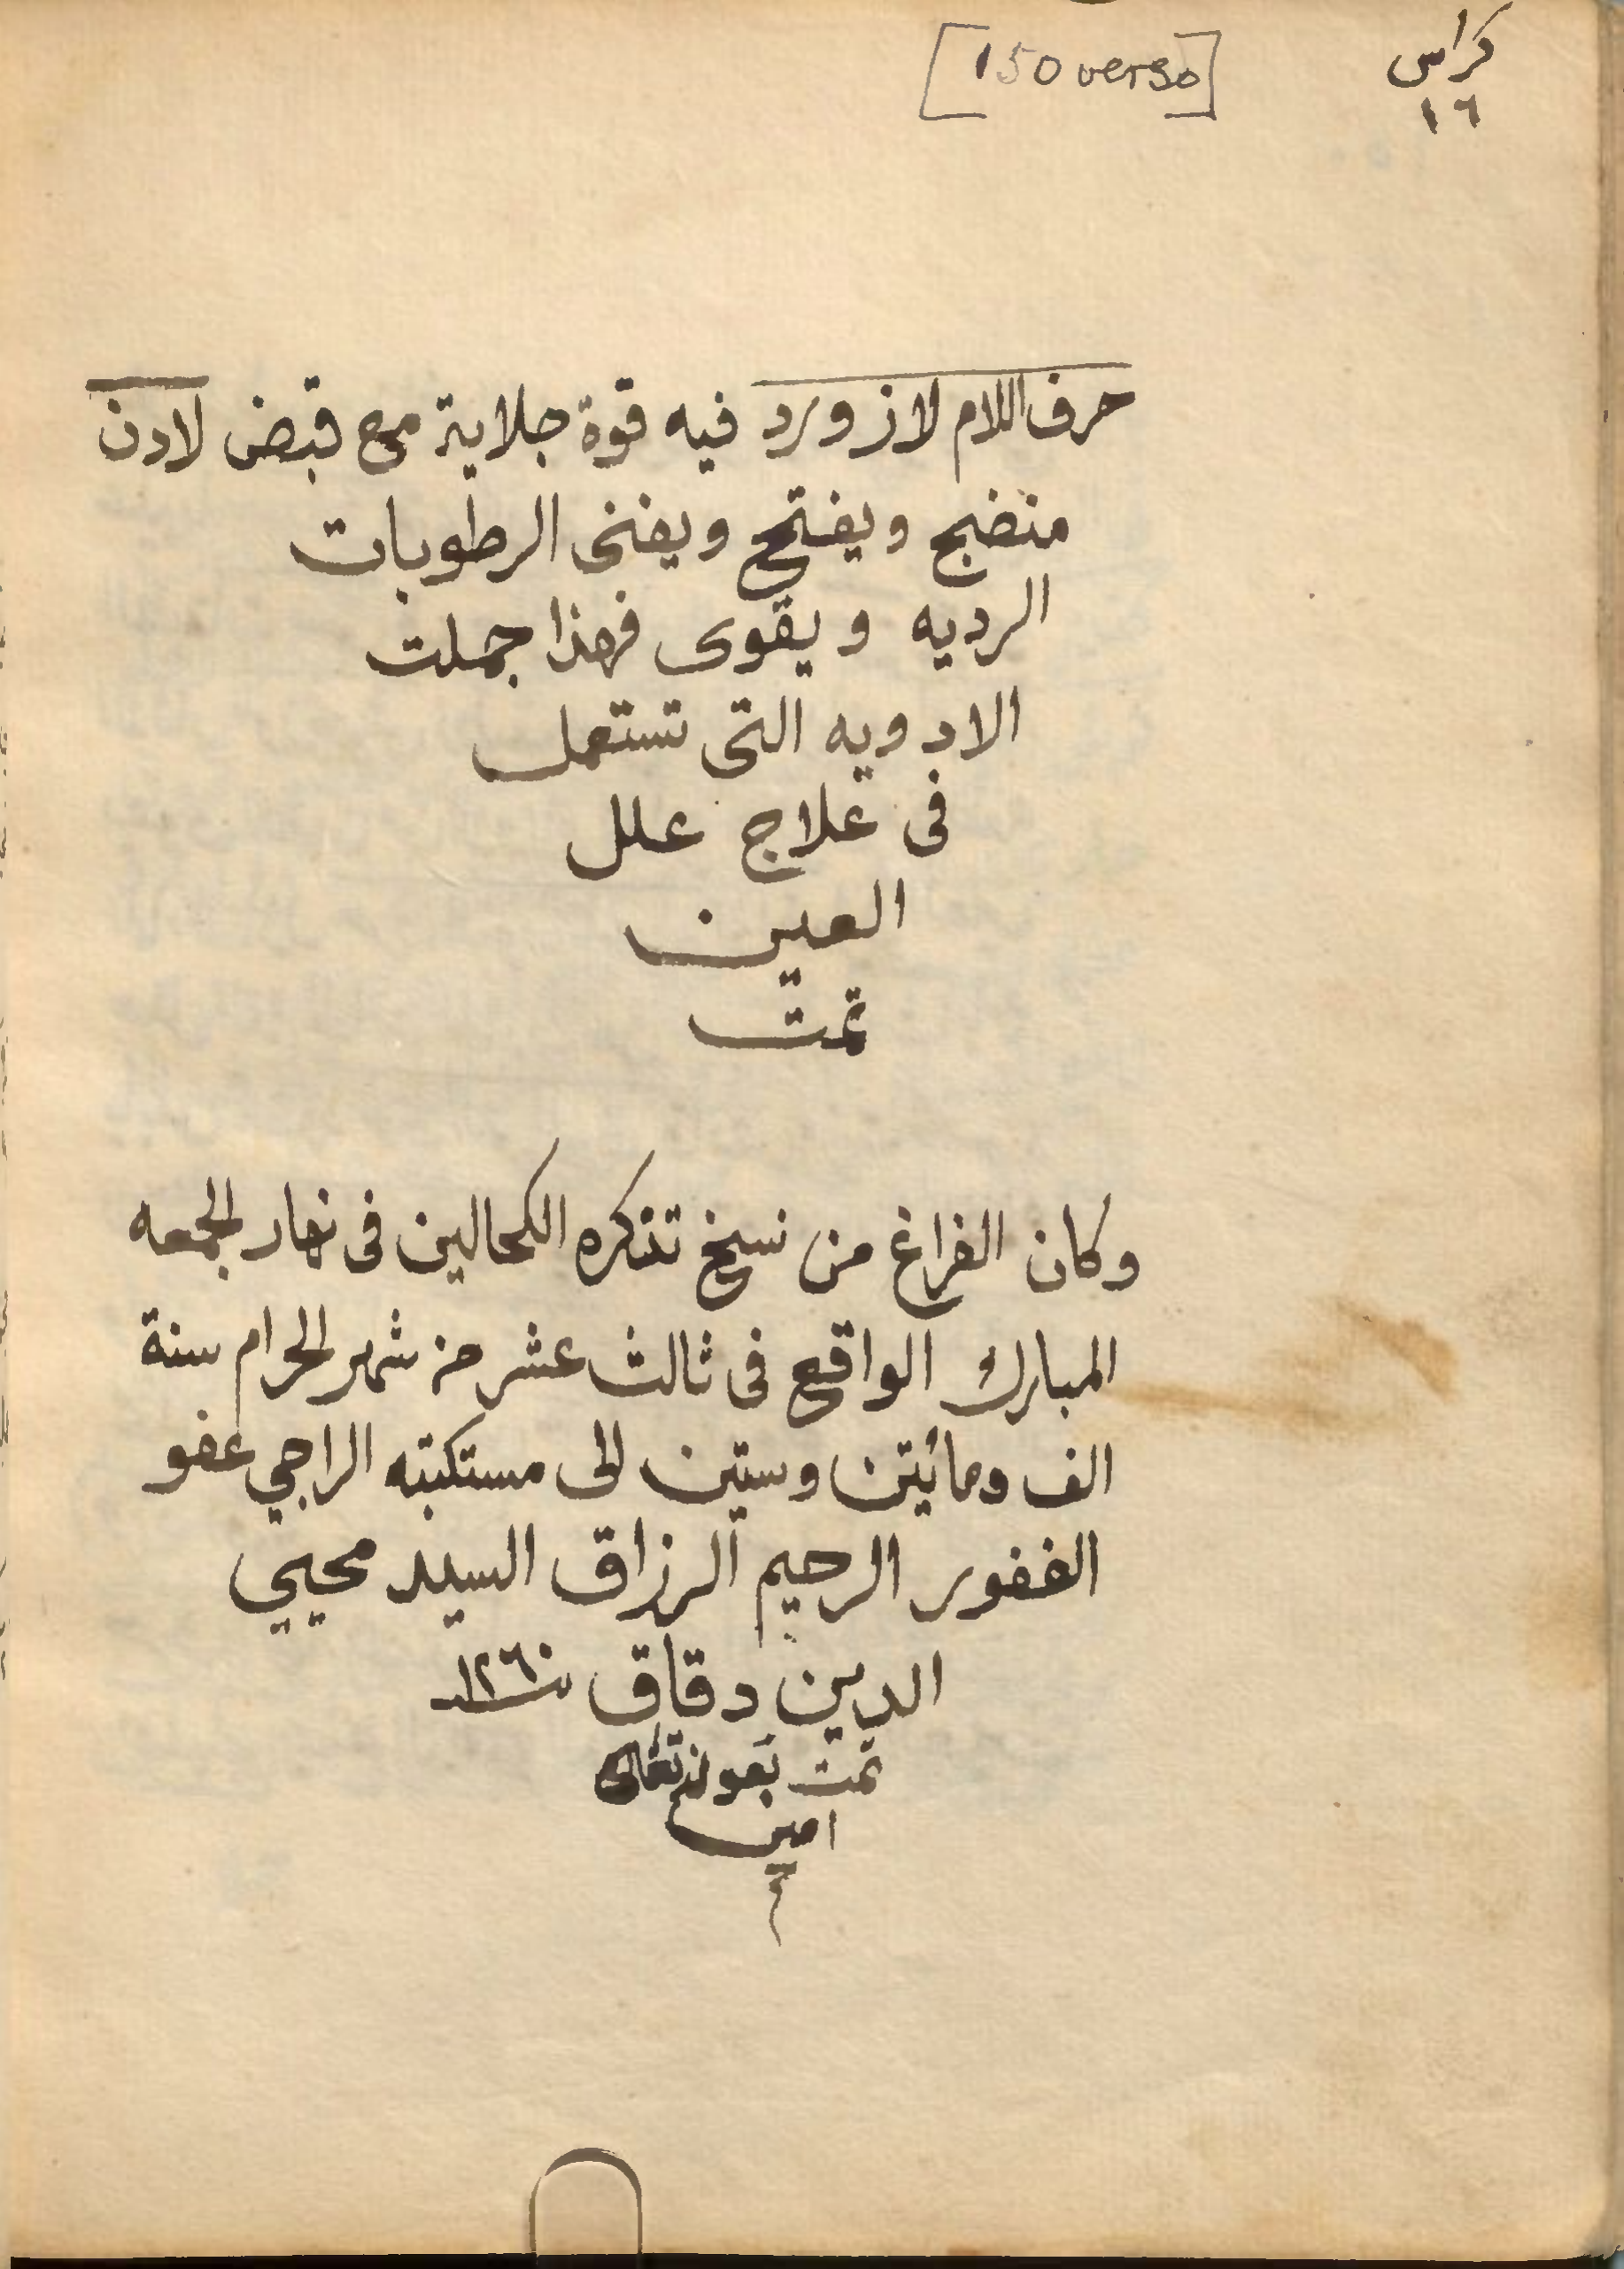 [150 verso]
كراس
١٦
حرف اللام لازورد فيه قوة جلاية مع قبض لادن
منضج ويفتح ويفنى الرطوبات
الرديه ويقوى فهذا جملت
الادويه التى تستعمل
فى علاج علل
العين
تمت
وكان الفراغ من نسخ تذكره الكحالين فى نهار الجمعه
المبارك الواقع فى ثالث عشر من شهر الحرام سنة
الف ومائيتن وستين الى مستكتبته الراجي عفو
الغفور الرحيم الرزاق السيد محيي
الدين دقاق سنة ١٢٦٠
تمت بعونه تعالى
امين